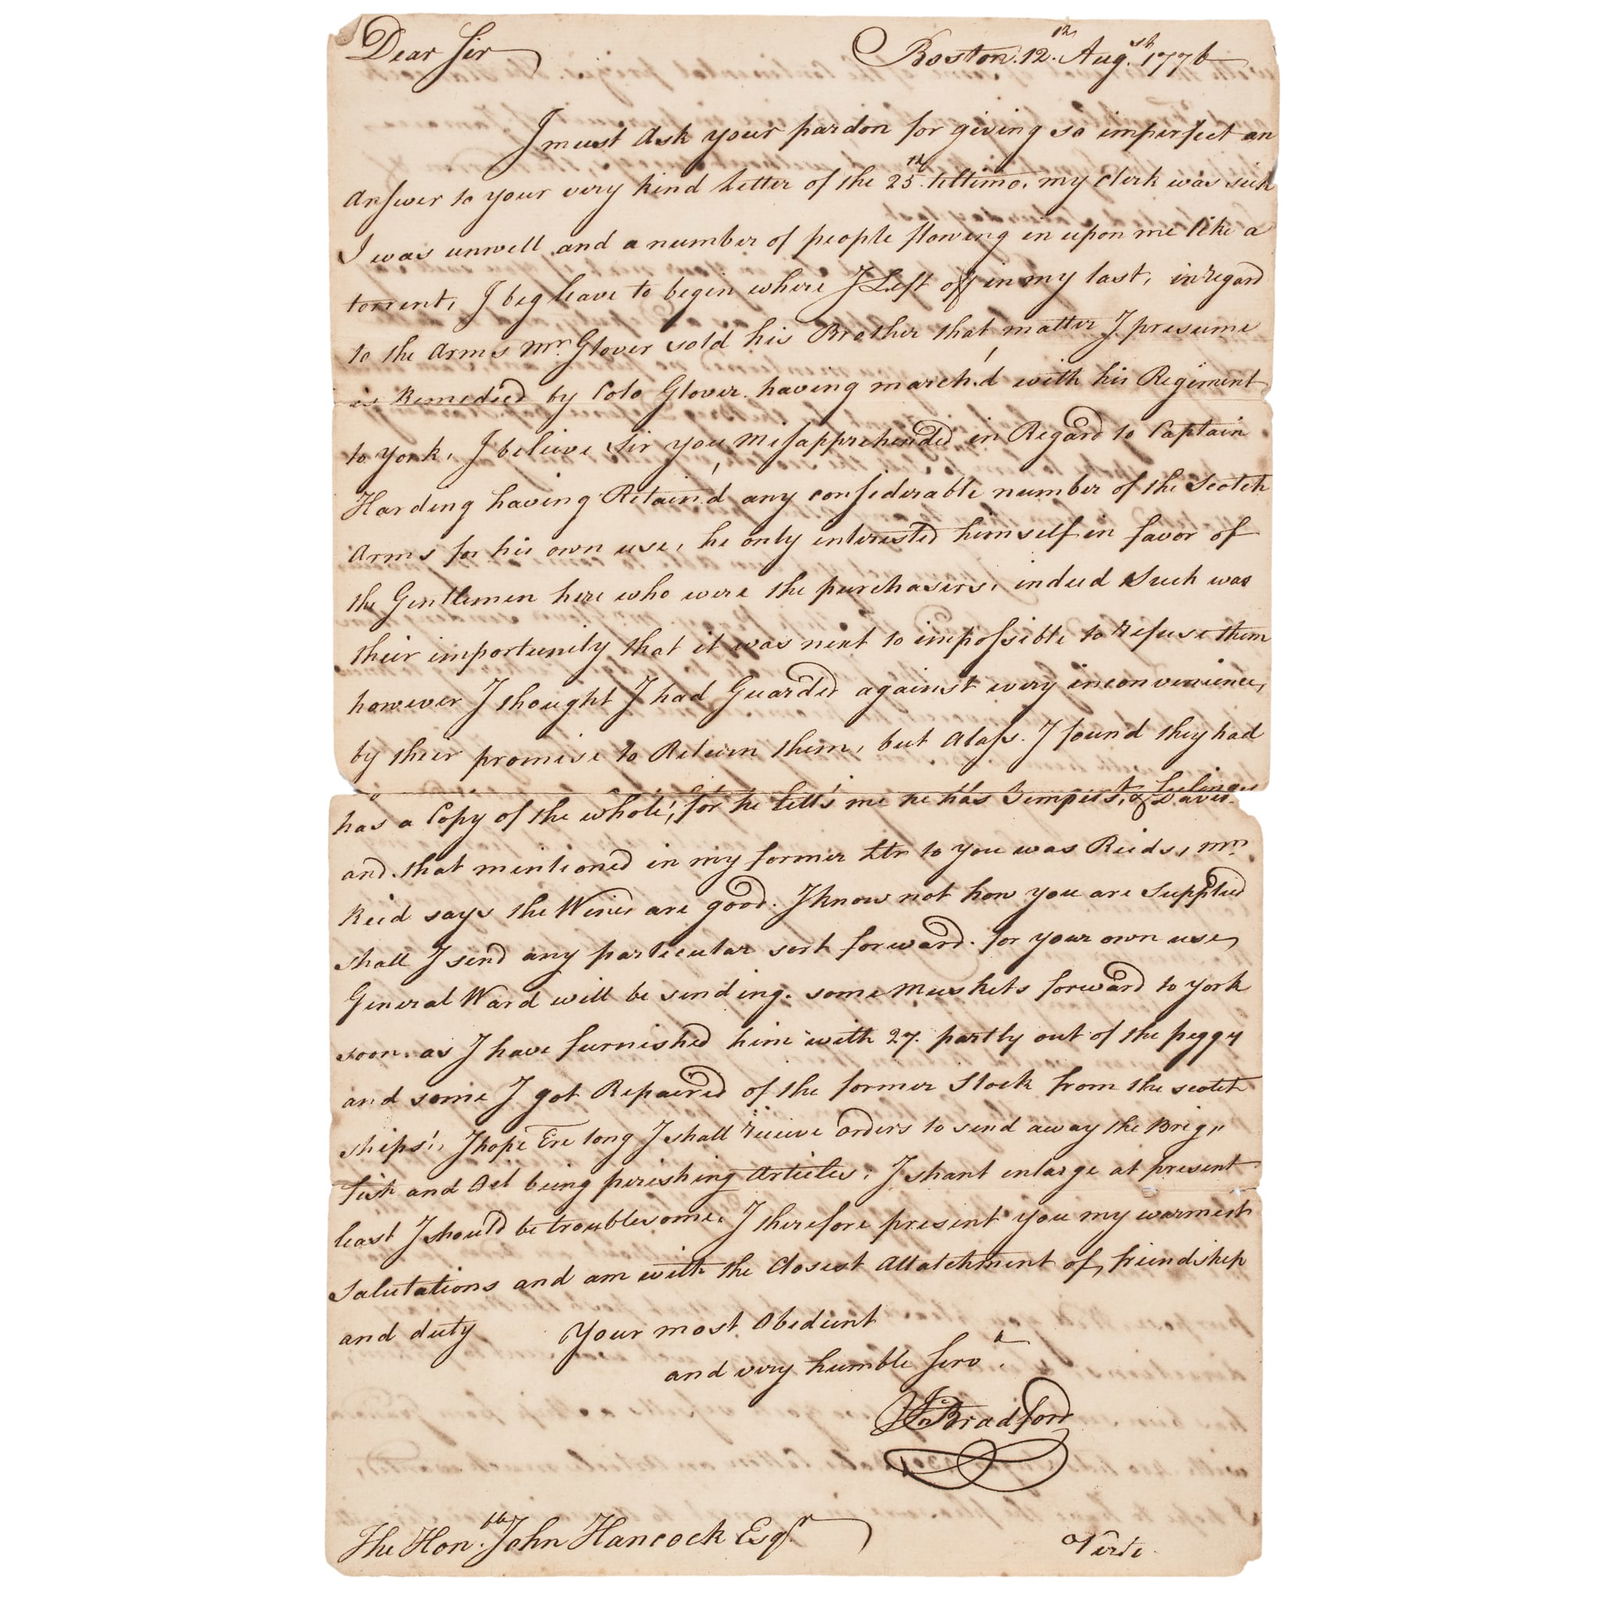 Dear Sir
Boston 12th Augst 1776
I must ask your pardon for giving so imperfect an
answer to your very kind Letter of the 25th ultimo, my clerk was sick
I was unwell and a number of people flowing in upon me like a
torrent, I beg leave to begin where I Left off in my last, in regard
to the Arms Mr Glover sold his Brother that matter I presume
is Remedied by Colo Glover having march'd with his Regiment
to York, I believe Sir you misapprehended in Regard to Captain
Harding having Retain'd any considerable number of the Scotch
Arms for his own use, he only interested himself in favor of
the Gentlemen here who were the purchasers, indeed such was
their importunity that it was next to impossible to refuse them
however I thought I had Guarded against every inconvenience,
by their promise to Return them, but alass. I found they had
has a Copy of the whole, for he tells me he has Sempest,
and that mentioned in my former Ltr to you was Reids, mr
Reid says the Wines are good. I know not how you are Supplied
shall I send any particular sort forward. for your own use,
General Ward will be sending some muskets forward to York
soon. as I have furnished him with 27. partly out of the peggy
and some I got Repaired of the former Stock from the scotch
ships, I hope Ere long I shall receive orders to send away the Brig,
Fish and Oil being perishing articles, I shant enlarge at present
least I should be troublesome. I therefore present you my warmest
salutations and am with the Closest Attatchment of friendship
and duty Your most Obedient
and very humble Servt
Jn Bradford
The Honble John Hancock Esqr